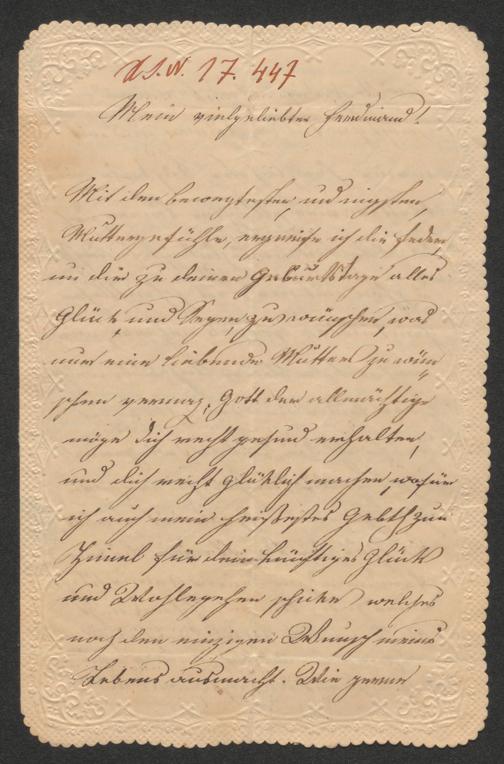 N. 17. 447
Mein vielgeliebter Ferdinand!
Mit den bewegtesten, und innigsten,
Muttergefühle, ergreife ich die Feder,
um dir zu deinem Geburtstage alles
Glück und Segen, zu wünschen, was
nur eine liebende Mutter zu wün
schen vermag, Gott der allmächtige
möge dich recht gesund erhalten,
und dich recht glüklich machen, wofür
ich auch mein heißestes Gebeth zum
Himel für dein künftiges Glück
und Wohlergehen schicke welches
noch den einzigen Wunsch meines
Lebens ausmacht. Wie gerne